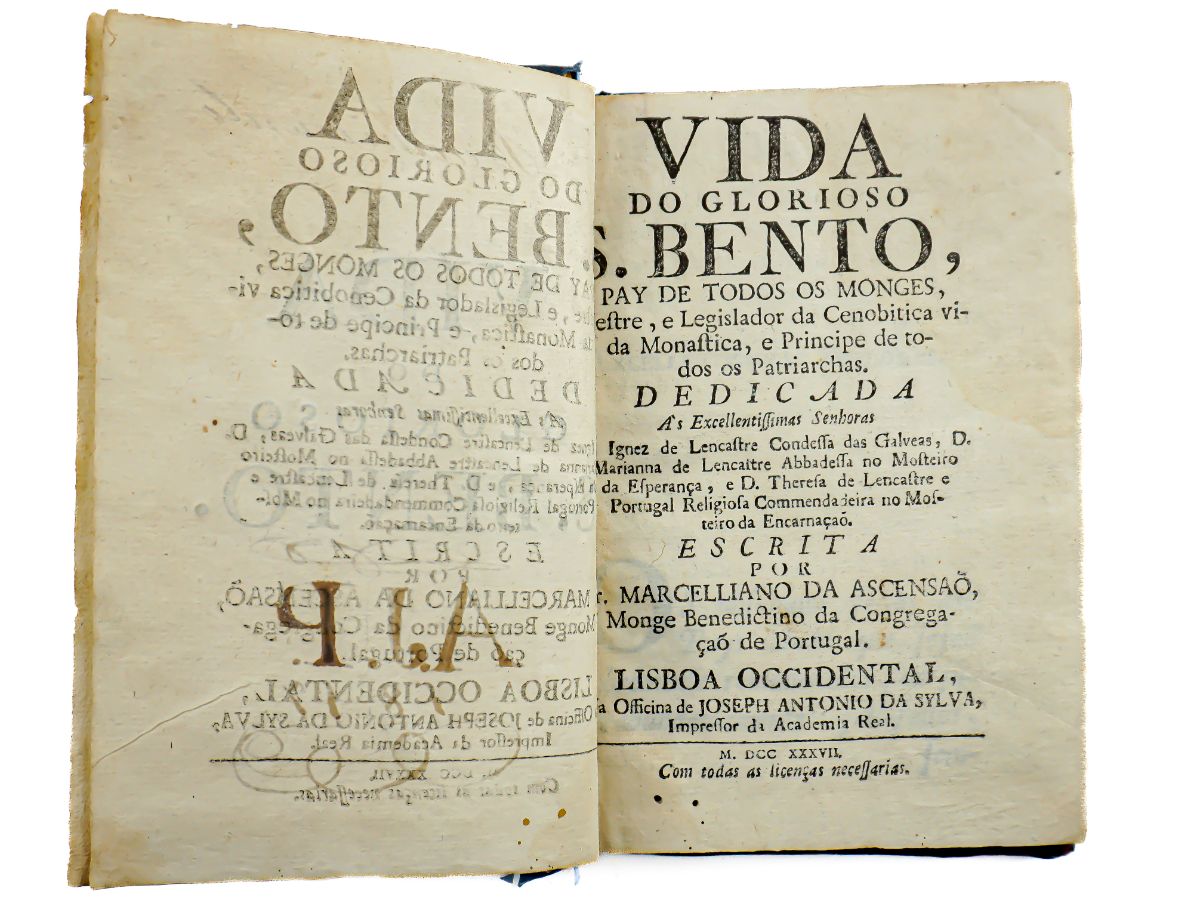 VIDA
DO GLORIOSO
S. BENTO,
PAY DE TODOS OS MONGES,
eſtre, e Legislador da Cenobitica vi-
da Monaſtica, e Principe de to-
dos os Patriarchas.
DEDICADA
A's Excellentiſſimas Senhoras
Ignez de Lencaſtre Condeſſa das Galveas, D.
Marianna de Lencaſtre Abbadeſſa no Moſteiro
da Eſperança, e D. Thereſa de Lencaſtre e
Portugal Religioſa Commendadeira no Moſ-
teiro da Encarnaçaõ.
ESCRITA
POR
r. MARCELLIANO DA ASCENSAÕ,
Monge Benedictino da Congrega-
çaõ de Portugal.
LISBOA OCCIDENTAL,
a Officina de JOSEPH ANTONIO DA SYLVA,
Impreſſor da Academia Real.
M. DCC XXXVII.
Com todas as licenças neceſſarias.